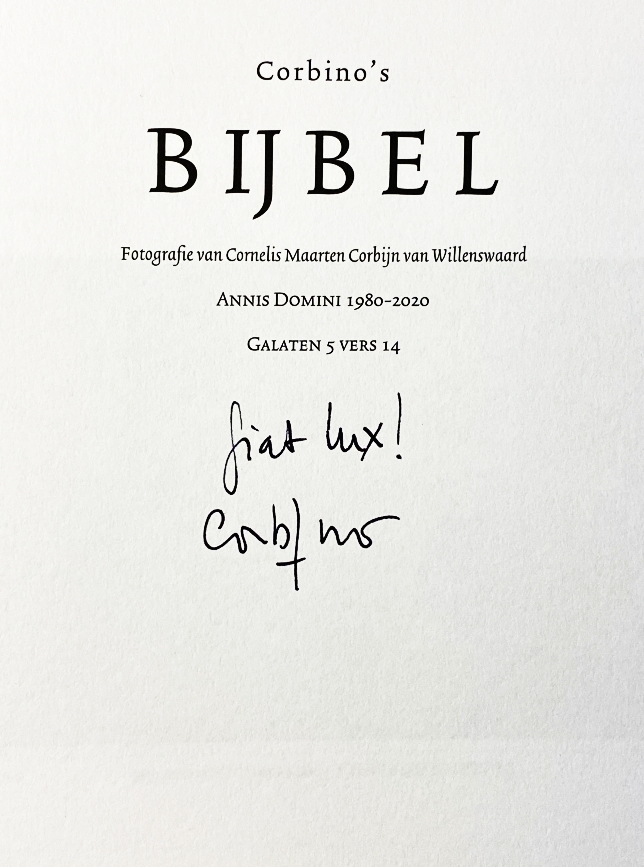 Corbino's
BIJBEL
Fotografie van Cornelis Maarten Corbijn van Willenswaard
ANNIS DOMINI 1980-2020
GALATEN 5 VERS 14
fiat lux!
Corbino